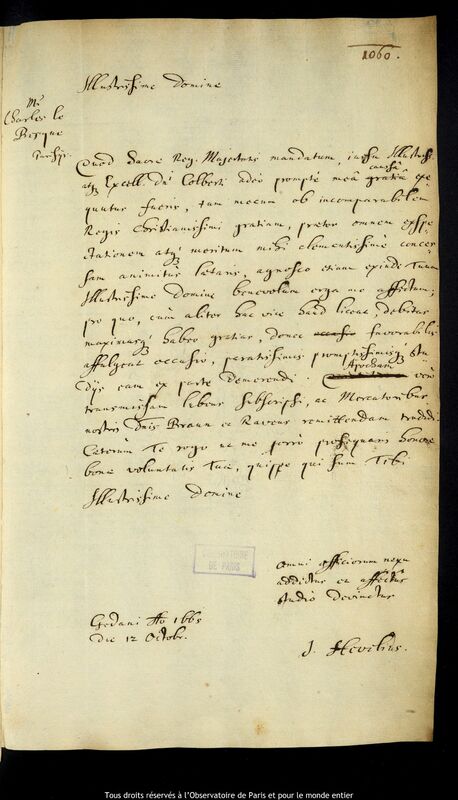 1060.
Illustrissime Domine
Mr
Charles le
Besque
Parisijs
Quod Sacrae Reg. Majestatis mandatum, iussu Illustriss.
atq; Excell. Dni Colberti adeo promptè meâ causâ gratiâ exe
quutus fueris, tam mecum ob incomparabilem
Regis Christianissimi gratiam, praeter omnem exspe
ctationem atq; meritum mihi clementissimè conces
sam animitus laetaris, agnosco etiam exinde Tuum
Illustrissime Domine benevolum erga me affectum;
pro quo, cùm aliter hac vice haud liceat, debitas
maximasq; habeo gratias, donec occasio favorabilis
affulgeat occasio, paratissimis promptissimisq; stu
dijs eam ex parte demerendi. Apocham vero
transmissam lubens subscripsi, ac Mercatoribus
nostris Dnis Braun et Ravens remittendam tradidi.
Caeterum Te rogo ut me porrò prosequaris honore
bonae voluntatis Tuae, quippe qui sum Tibi
Illustrissime Domine
OBSERVATOIRE
DE PARIS
Omni officiorum nexu
addictus et affectus
studio devinctus
Gedani Ao 1665
die 12 Octobr.
J. Hevelius.
Tous droits réservés à l'Observatoire de Paris et pour le monde entier